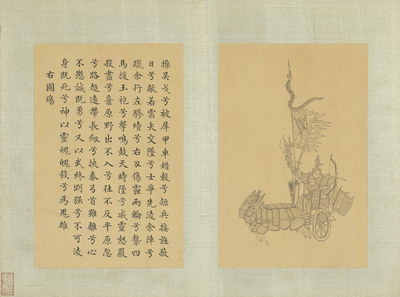 操吳戈兮被犀甲車錯轂兮短兵接旌蔽
日兮敵若雲矢交墜兮士爭先凌余陣兮
躐余行左驂殪兮右刃傷霾兩輪兮縶四
馬援玉枹兮擊鳴鼓天時墜兮威靈怒嚴
殺盡兮棄原野出不入兮往不反平原忽
兮路超遠帶長劍兮挾秦弓首雖離兮心
不懲誠既勇兮又以武終剛強兮不可凌
身既死兮神以靈魂魄毅兮為鬼雄
右國殤